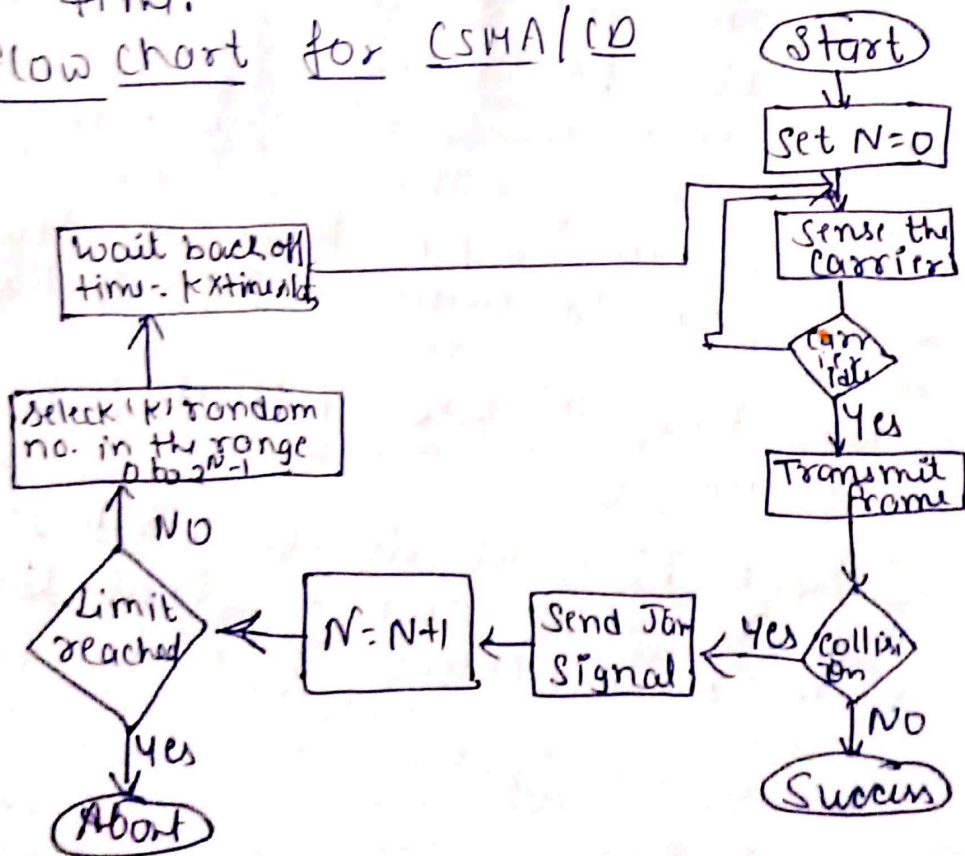 time.
low chart for CSMA/CD
Start
Set N=0
Sense the
carrier
Yes
Transmit
frame
collisi
on
NO
Success
Yes
Send Jam
Signal
N=N+1
Limit
reached
Yes
Abort
NO
Select 'K' random
no. in the range
0 to 2^N-1
wait back off
time-